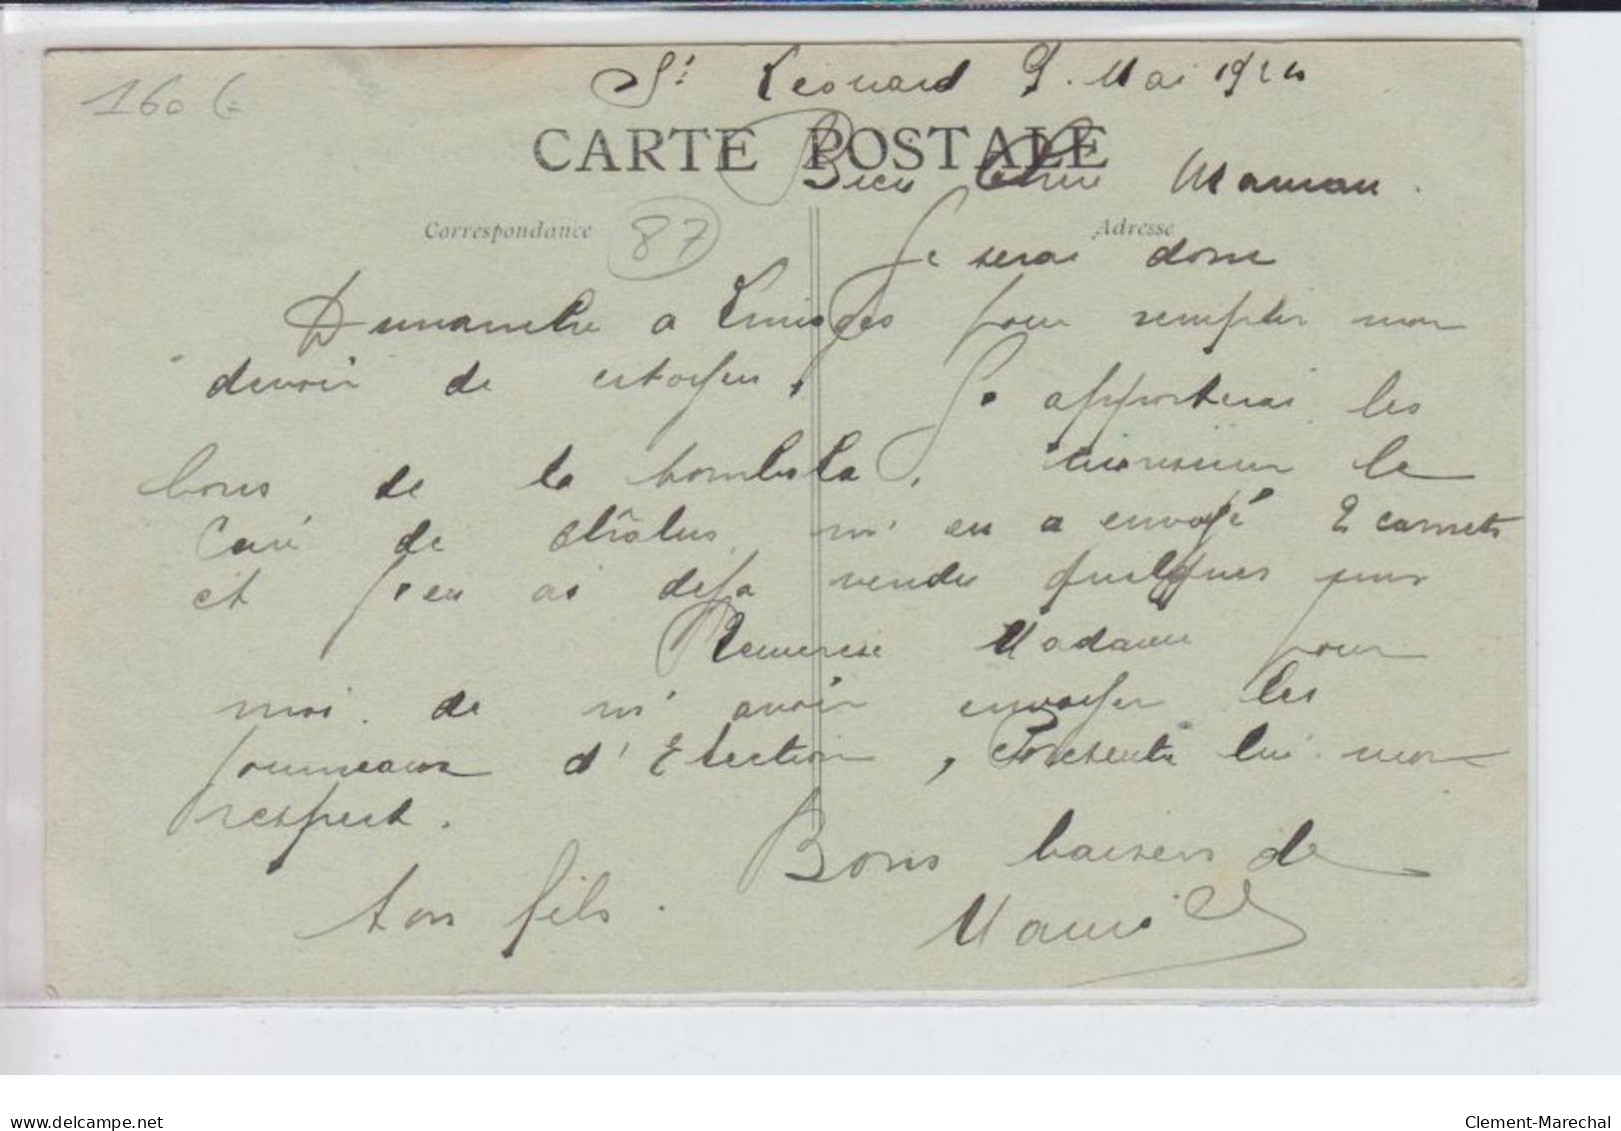 160 €
St Léonard 9 Mai 1924
CARTE POSTALE
Bien Chère Maman.
Correspondance
87
Adresse
Je serai donc
Dimanche a Limoges pour remplir mon
devoir de citoyen. Je apporterai les
bons de la tombola, monsieur le
Curé de Châlus m'en a envoyé 2 carnets
et j'en ai deja vendu quelques uns
Remercie Madame pour
moi de m'avoir envoyer les
journeaux d'Election, Présente lui mon
respect.
Bons baisers de
ton fils.
delcampe.net
Clement-Marechal